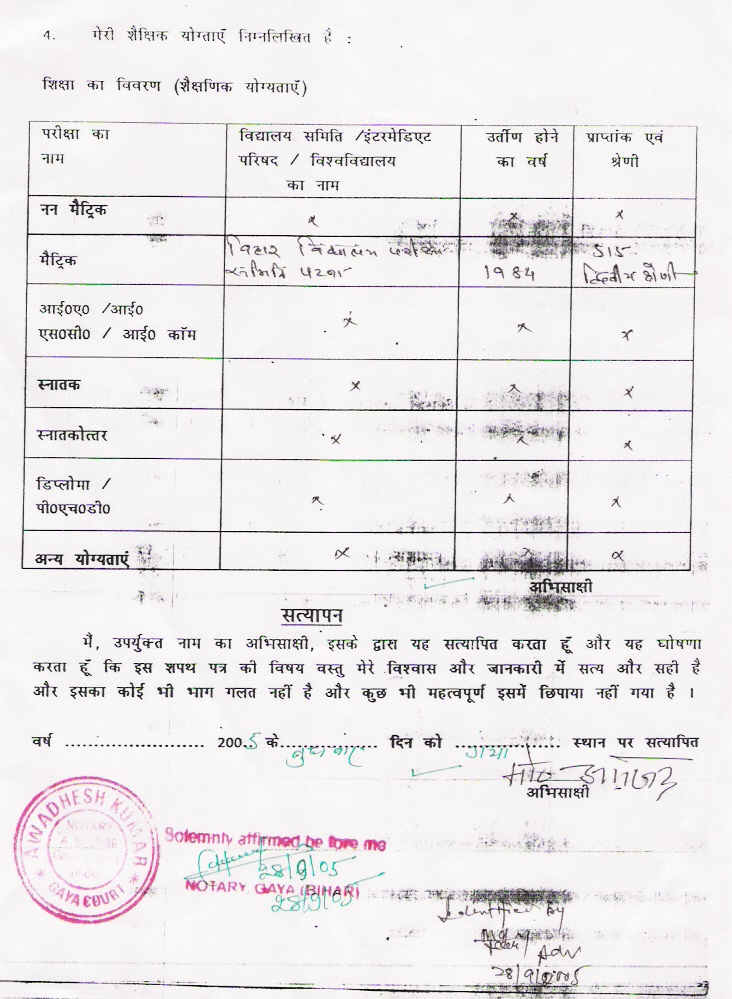 4. मेरी शैक्षिक योग्ताएँ निम्नलिखित है :
शिक्षा का विवरण (शैक्षणिक योग्यताएँ)
परीक्षा का नाम विद्यालय समिति /इंटरमेडिएट परिषद / विश्वविद्यालय का नाम उर्तीण होने का वर्ष प्राप्तांक एवं श्रेणी
नन मैट्रिक x x x
मैट्रिक बिहार विद्यालय परीक्षा समिति पटना 1984 515 द्वितीय श्रेणी
आई०ए० /आई० एस०सी० / आई० कॉम x x x
स्नातक x x x
स्नातकोत्तर x x x
डिप्लोमा / पी०एच०डी० x x x
अन्य योग्यताएं x x x
अभिसाक्षी
सत्यापन
मै, उपर्युक्त नाम का अभिसाक्षी, इसके द्वारा यह सत्यापित करता हूँ और यह घोषणा
करता हूँ कि इस शपथ पत्र की विषय वस्तु मेरे विश्वास और जानकारी में सत्य और सही है
और इसका कोई भी भाग गलत नहीं है और कुछ भी महत्वपूर्ण इसमें छिपाया नहीं गया है ।
वर्ष ........................ 2005 के. बुधवार दिन को गया स्थान पर सत्यापित
मो०
अभिसाक्षी
AWADHESH KUMAR
NOTARY
GAYA COURT
Solemnly affirmed be fore me
28/9/05
NOTARY. GAYA (BIHAR)
28/9/05
Identified by
Adv
28/9/2005